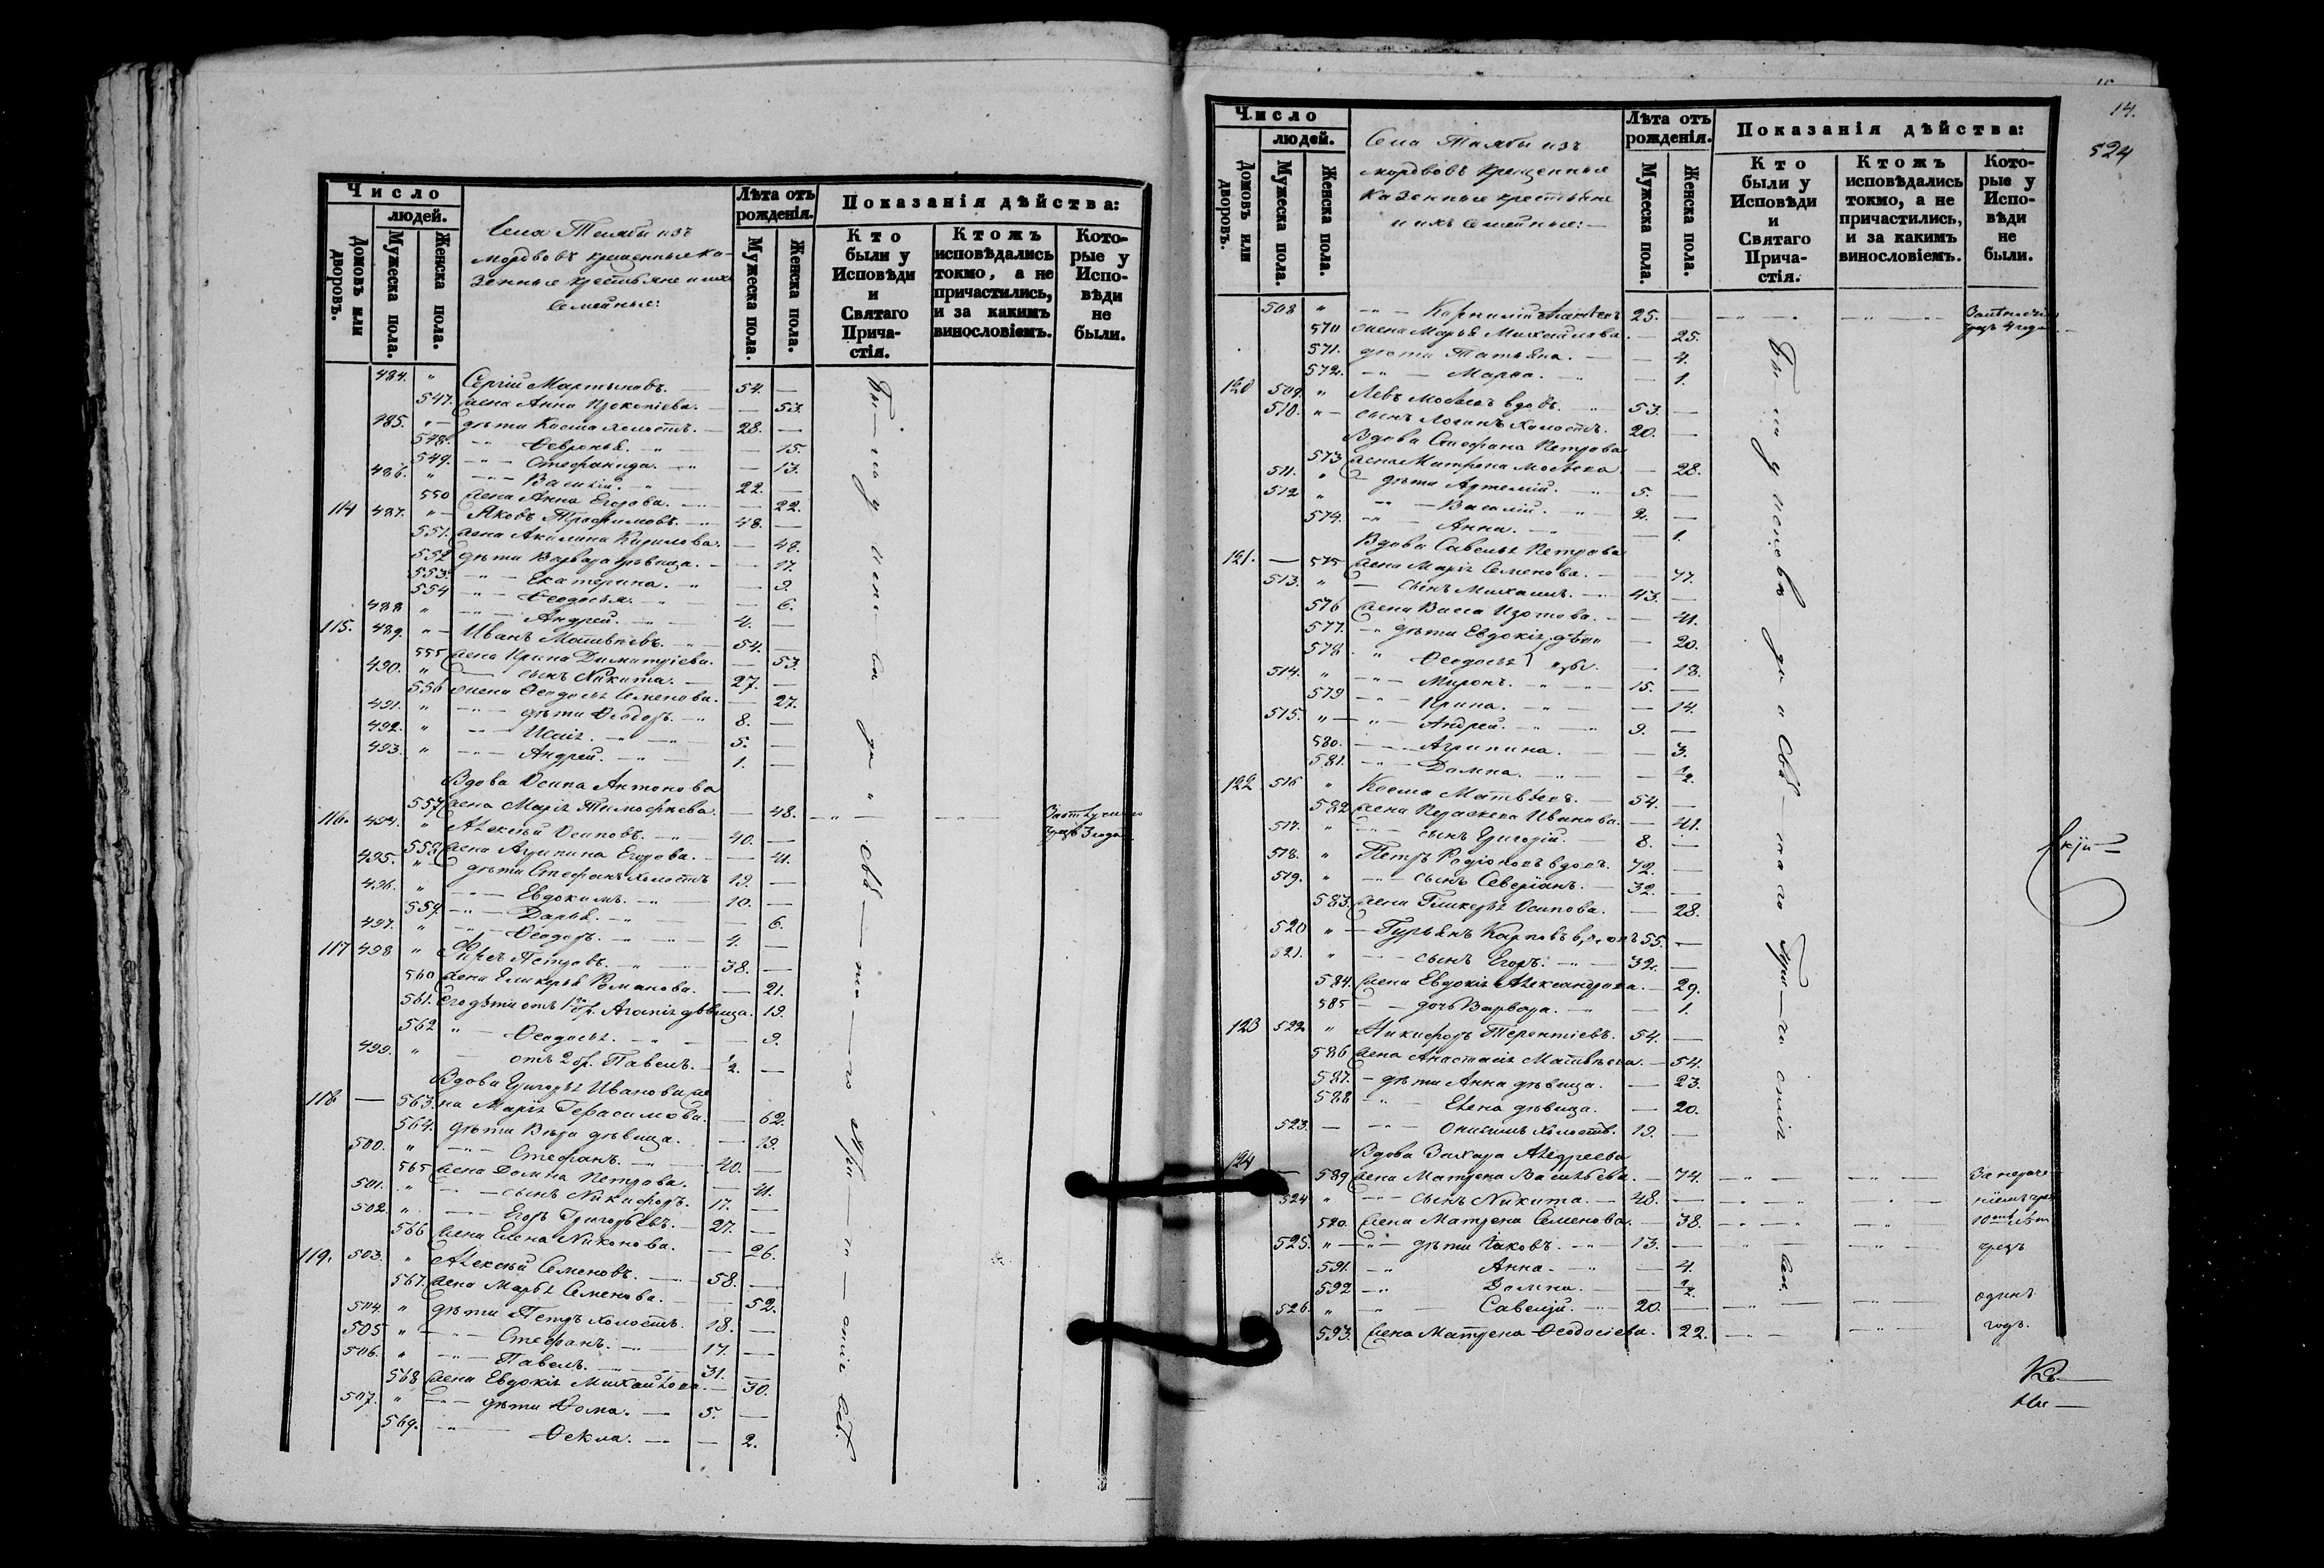 Число
людей.
Домовъ или дворовъ.
Мужеска пола.
Женска пола.
Села Темяби изъ
мордвовъ крещенные ка-
зенные крестьяне и ихъ
семейные:
Лѣта отъ рожденія.
Мужеска пола.
Женска пола.
Показанія дѣйства:
Кто были у Исповѣди и Святаго Прича-стія.
Ктожъ исповѣдались токмо, а не причастились, и за какимъ винословіемъ.
Кото-рые у Испо-вѣди не были.
484. " Сергій Мартыновъ. 54. —
547. жена Анна Прокопіева. — 53.
485. " дѣти Косма холостъ. 28. —
548. Февронья. — 15.
549. Стефанида. — 13.
486. " Василій. 22. —
550 жена Анна Егорова. — 22.
114 487. " Яковъ Трофимовъ. 48. —
551. жена Акилина Кирилова. — 48.
552 дѣти Варвара дѣвица. — 17.
553. Екатерина. — 9.
554 Феодосья. — 6.
488 " Андрей. 4. —
115. 489. " Иванъ Матвѣевъ. 54. —
555 жена Ирина Димитріева. — 53
490. " сынъ Никита. 27. —
556 жена Феодосья Семенова. — 27.
491. " дѣти Феодоръ. 8. —
492. " Исаія. 5. —
493. " Андрей. 1. —
Вдова Осипа Антонова
557 жена Марія Тимофѣева. — 48.
116. 494. " Алексѣй Осиповъ. 40. —
558 жена Агрипина Егорова. — 41.
495. " дѣти Стефанъ холостъ 19. —
496. " Евдокимъ. 10. —
559 Дарья. — 6.
497. " Феодоръ. 4. —
117 498 " Фирсъ Петровъ. 38. —
560 жена Гликерья Романова. — 21.
561. его дѣти отъ 1го бр. Агапія дѣвица. 19.
562 Феодосья. — 9.
499. " отъ 2 бр. Павелъ. 1/2. —
Вдова Григорья Иванова же
118. — 563. на Марія Герасимова. — 62.
564. дѣти Вѣра дѣвица. — 19.
500. " Стефанъ. 40. —
565 жена Домна Петрова. — 41.
501. " сынъ Никифоръ. 17. —
502. " Егоръ Григорьевъ. 27. —
566 жена Елена Никонова. — 26.
119. 503. " Алексѣй Семеновъ. 58. —
567. жена Марья Семенова. — 52.
504. " дѣти Петръ холостъ. 18. —
505 " Стефанъ. 17. —
506. " Павелъ. 31. —
568 жена Евдокія Михайлова. — 30.
507. " дѣти Фома. 5. —
569. Фекла. — 2.
14.
524
Число
людей.
Домовъ или дворовъ.
Мужеска пола.
Женска пола.
Села Темяби изъ
мордвовъ крещенные
казенные крестьяне
и ихъ семейные:—
Лѣта отъ рожденія.
Мужеска пола.
Женска пола.
Показанія дѣйства:
Кто были у Исповѣди и Святаго Прича-стія.
Ктожъ исповѣдались токмо, а не причастились, и за какимъ винословіемъ.
Кото-рые у Испо-вѣди не были.
508 " Корнилій 25. —
570 жена Марья Михайлова. — 25.
571. дѣти Татьяна. — 4.
572. Марѳа. — 1.
120 509. " Левъ вдовъ. 53. —
510. " сынъ Логинъ холостъ. 20. —
Вдова Стефана Петрова
573 жена Матрена — 28.
511. " дѣти Артемій. 5. —
512 " Василій. 2. —
574. Анна. — 1.
Вдова Савелья Петрова
121. — 575 жена Марія Семенова. — 77.
513. " сынъ Михаилъ. 43. —
576 жена Васса Изотова. — 41.
577. дѣти Евдокія — 20.
578 Феодосья — 18.
514. " Миронъ. 15. —
579 Ирина. — 14.
515. " Андрей. 9. —
580. Агрипина. — 3.
581. Домна. — 1/2.
122 516 " Косма Матвѣевъ. 54. —
582 жена Параскева Иванова. — 41.
517. " сынъ Григорій. 8. —
518. " Петръ Родіоновъ вдовъ. 72. —
519. " сынъ Северіанъ. 32. —
583. жена Гликерья Осипова. — 28.
520 " Гурьянъ Карповъ вдовъ 55. —
521. " сынъ Егоръ. 32. —
584. жена Евдокія Александрова. — 29.
585 дочь Варвара. — 1.
123 522 " Никифоръ Терентіевъ. 54. —
586 жена Анастасія Матвѣева. — 54.
587. дѣти Анна дѣвица. — 23.
588 Елена дѣвица. — 20.
523. — Онисимъ холостъ. 19. —
Вдова Захара Андреева
124 — 589 жена Матрена Васильева. — 74.
524 " сынъ Никита. 48. —
590. жена Матрена Семенова. — 38.
525. " дѣти Іаковъ. 13. —
591. Анна. — 4.
592 Домна. — 1/2.
526. " Савелій. 20. —
593. жена Матрена Феодосіева. 22.
одинъ
годъ.